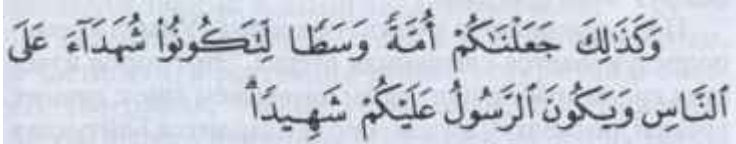 وَكَذَٰلِكَ جَعَلْنَـٰكُمْ أُمَّةً وَسَطًا لِّتَكُونُوا۟ شُهَدَآءَ عَلَى
ٱلنَّاسِ وَيَكُونَ ٱلرَّسُولُ عَلَيْكُمْ شَهِيدًا